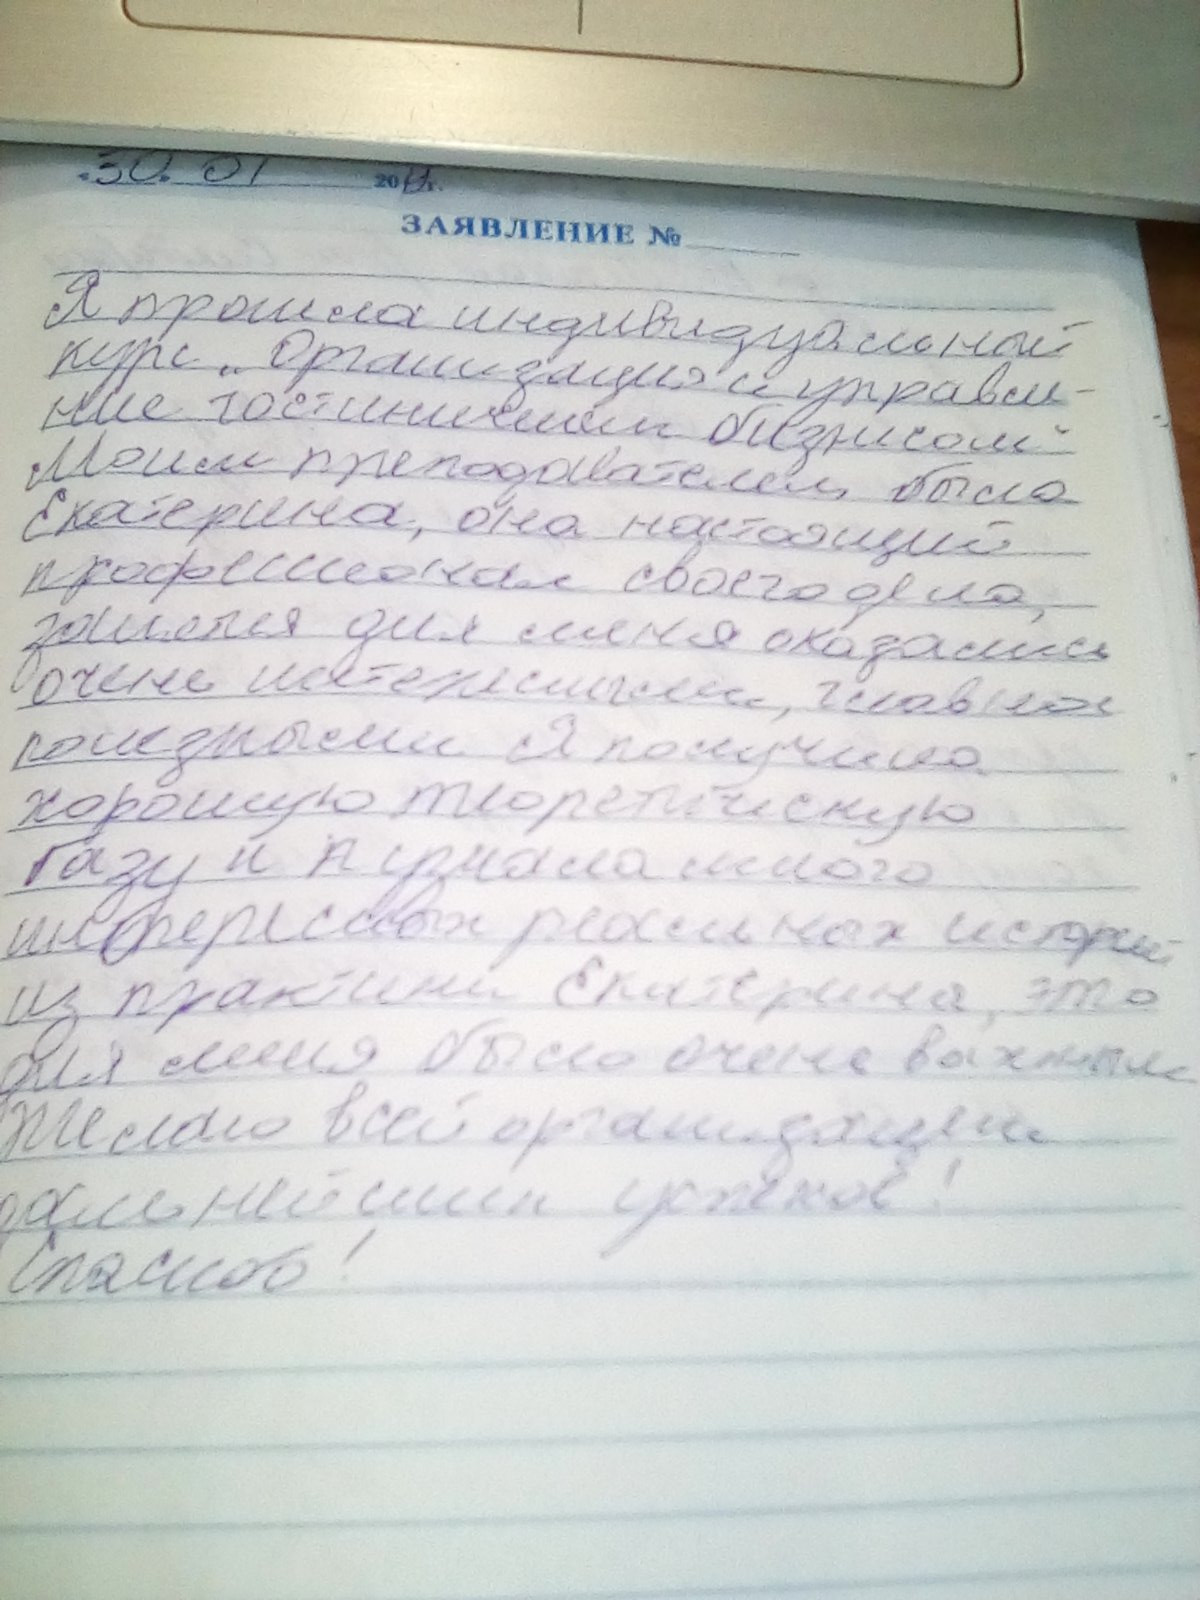 "30" 01 20 г.
ЗАЯВЛЕНИЕ №
Я прошла индивидуальный
курс "Организация и управле-
ние гостиничным бизнесом"
Моим преподавателем была
Екатерина, она настоящий
профессионал своего дела,
занятия для меня оказались
очень интересными, главное
полезными Я получила
хорошую теоретическую
базу и узнала много
интересных реальных историй
из практики Екатерина, это
для меня было очень важным
Желаю всей организации
дальнейших успехов!
Спасибо!